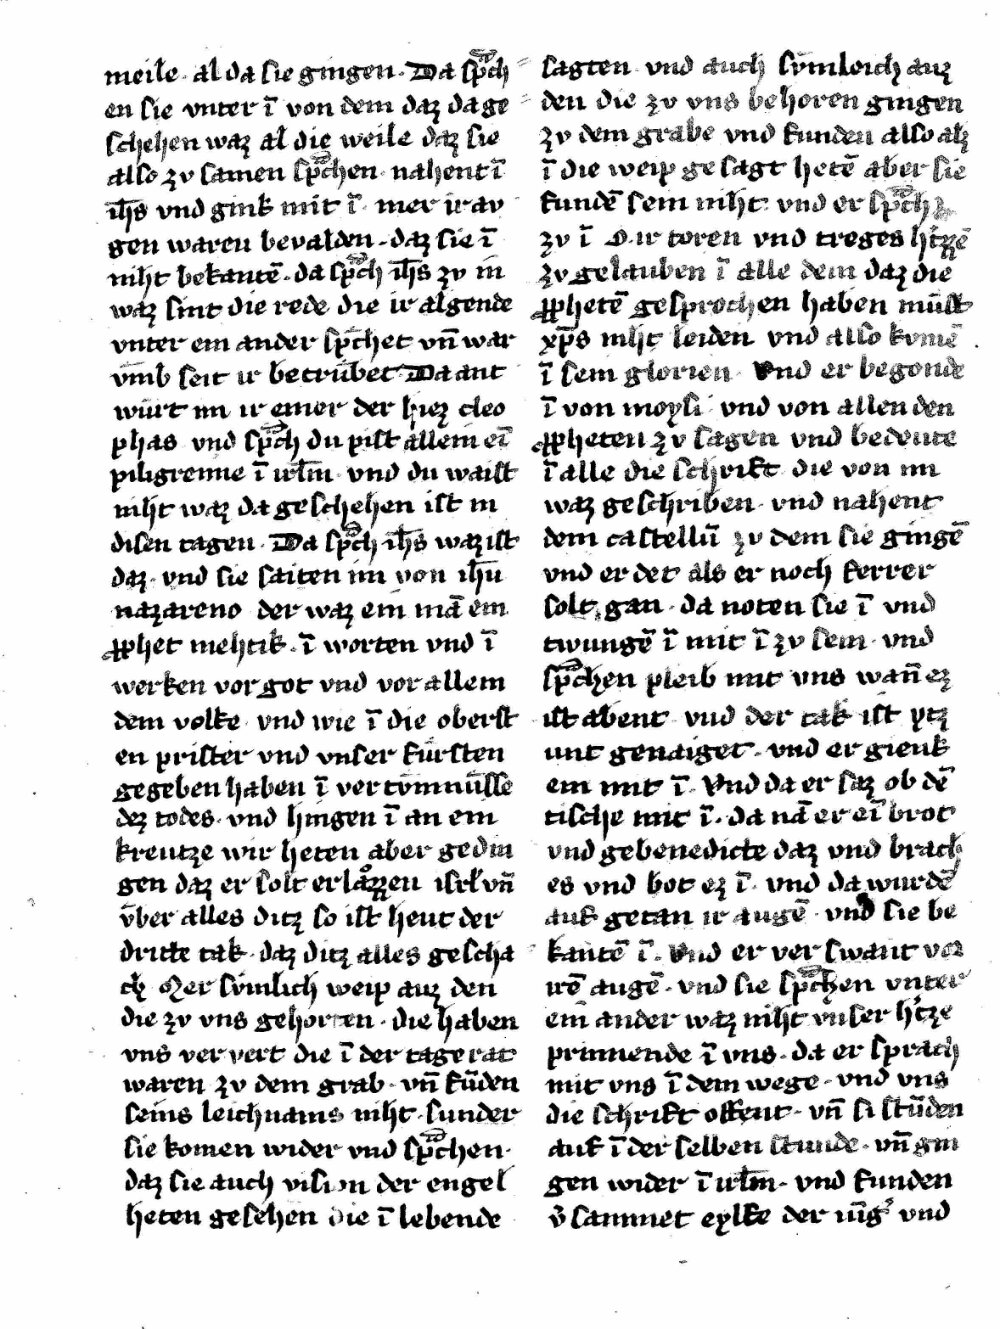 meile · al da sie gingen · Da sp̄ch
en sie vnter ī von dem daz da ge
schehen waz al die weile daz sie
also zv samen sp̄chen · nahent ī
ih̄s vnd gink mit ī · mer ir av
gen waren bevalden · daz sie ī
niht bekantē · da sp̄ch ih̄s zv in
waz sint die rede die ir algende
vnter ein ander sp̄chet vn̄ war
vm̄b seit ir betrůbet Da ant
wůrt im ir einer der hiez cleo
phas vnd sp̄ch du pist allein eī
piligreime ī irl̄m · vnd du waist
niht waz da geschehen ist in
disen tagen · Da sp̄ch ih̄s waz ist
daz · vnd sie saiten im von ih̄u
nazareno der waz ein mā ein
ꝓphet mehtik · ī worten vnd ī
werken vor got vnd vor allem
dem volke vnd wie ī die oberst
en prister vnd vnser fůrsten
gegeben haben ī vertůmnůsse
dez todes · vnd hingen ī an ein
kreutze wir heten aber gedin
gen daz er solt erlöͤzzen isrł vn̄
v̄ber alles ditz so ist heut der
dritte tak · daz ditz alles gescha
ch Mer sv̊mlich weip auz den
die zv vns gehorten · die haben
vns ververt die ī der tagerat
waren zv dem grab · vn̄ fūden
seins leichnams niht · sunder
sie komen wider vnd sp̄chen ·
daz sie auch vision der engel
heten gesehen die ī lebende
sagten vnd auch sv̊mleich auz
den die zv vns behoren gingen
zv dem grabe vnd funden also alz
ī die weip gesagt hetē aber sie
fundē sein niht · vnd er sp̄ch
zv ī O ir toren vnd treges h̄tzzē
zv gelauben ī alle dem daz die
ꝓphetē gesprochen haben můst
xp̄s niht leiden vnd also kvmē
ī sein glorien · Vnd er begonde
ī von moysi vnd von allen den
ꝓpheten zv sagen vnd bedeute
ī alle die schrift die von im
waz geschriben · vnd nahent
dem castellū zv dem sie gingē
vnd er det als er noch ferrer
solt gan · da noten sie ī vnd
twungē ī mit ī zv sein · vnd
sp̄chen pleib mit vns wan̄ ez
ist abent vnd der tak ist ytz
unt genaiget · vnd er gienk
ein mit ī · Vnd da er saz ob dē
tische mit ī · da nā er eī brot
vnd gebenedicte daz vnd brach
es vnd bot ez ī · vnd da wurdē
auf getan ir augē · vnd sie be
kantē ī · Vnd er verswant vor
irē augē · vnd sie sp̄chen vnter
ein ander waz niht vnser h̄tze
prinnende ī vns · da er sprach
mit vns ī dem wege · vnd vns
die schrift offent · vn̄ si stūden
auf ī der selben stunde · vn̄ gin
gen wider ī irl̄m · vnd funden
v̊ sammet eylfe der iūg' vnd